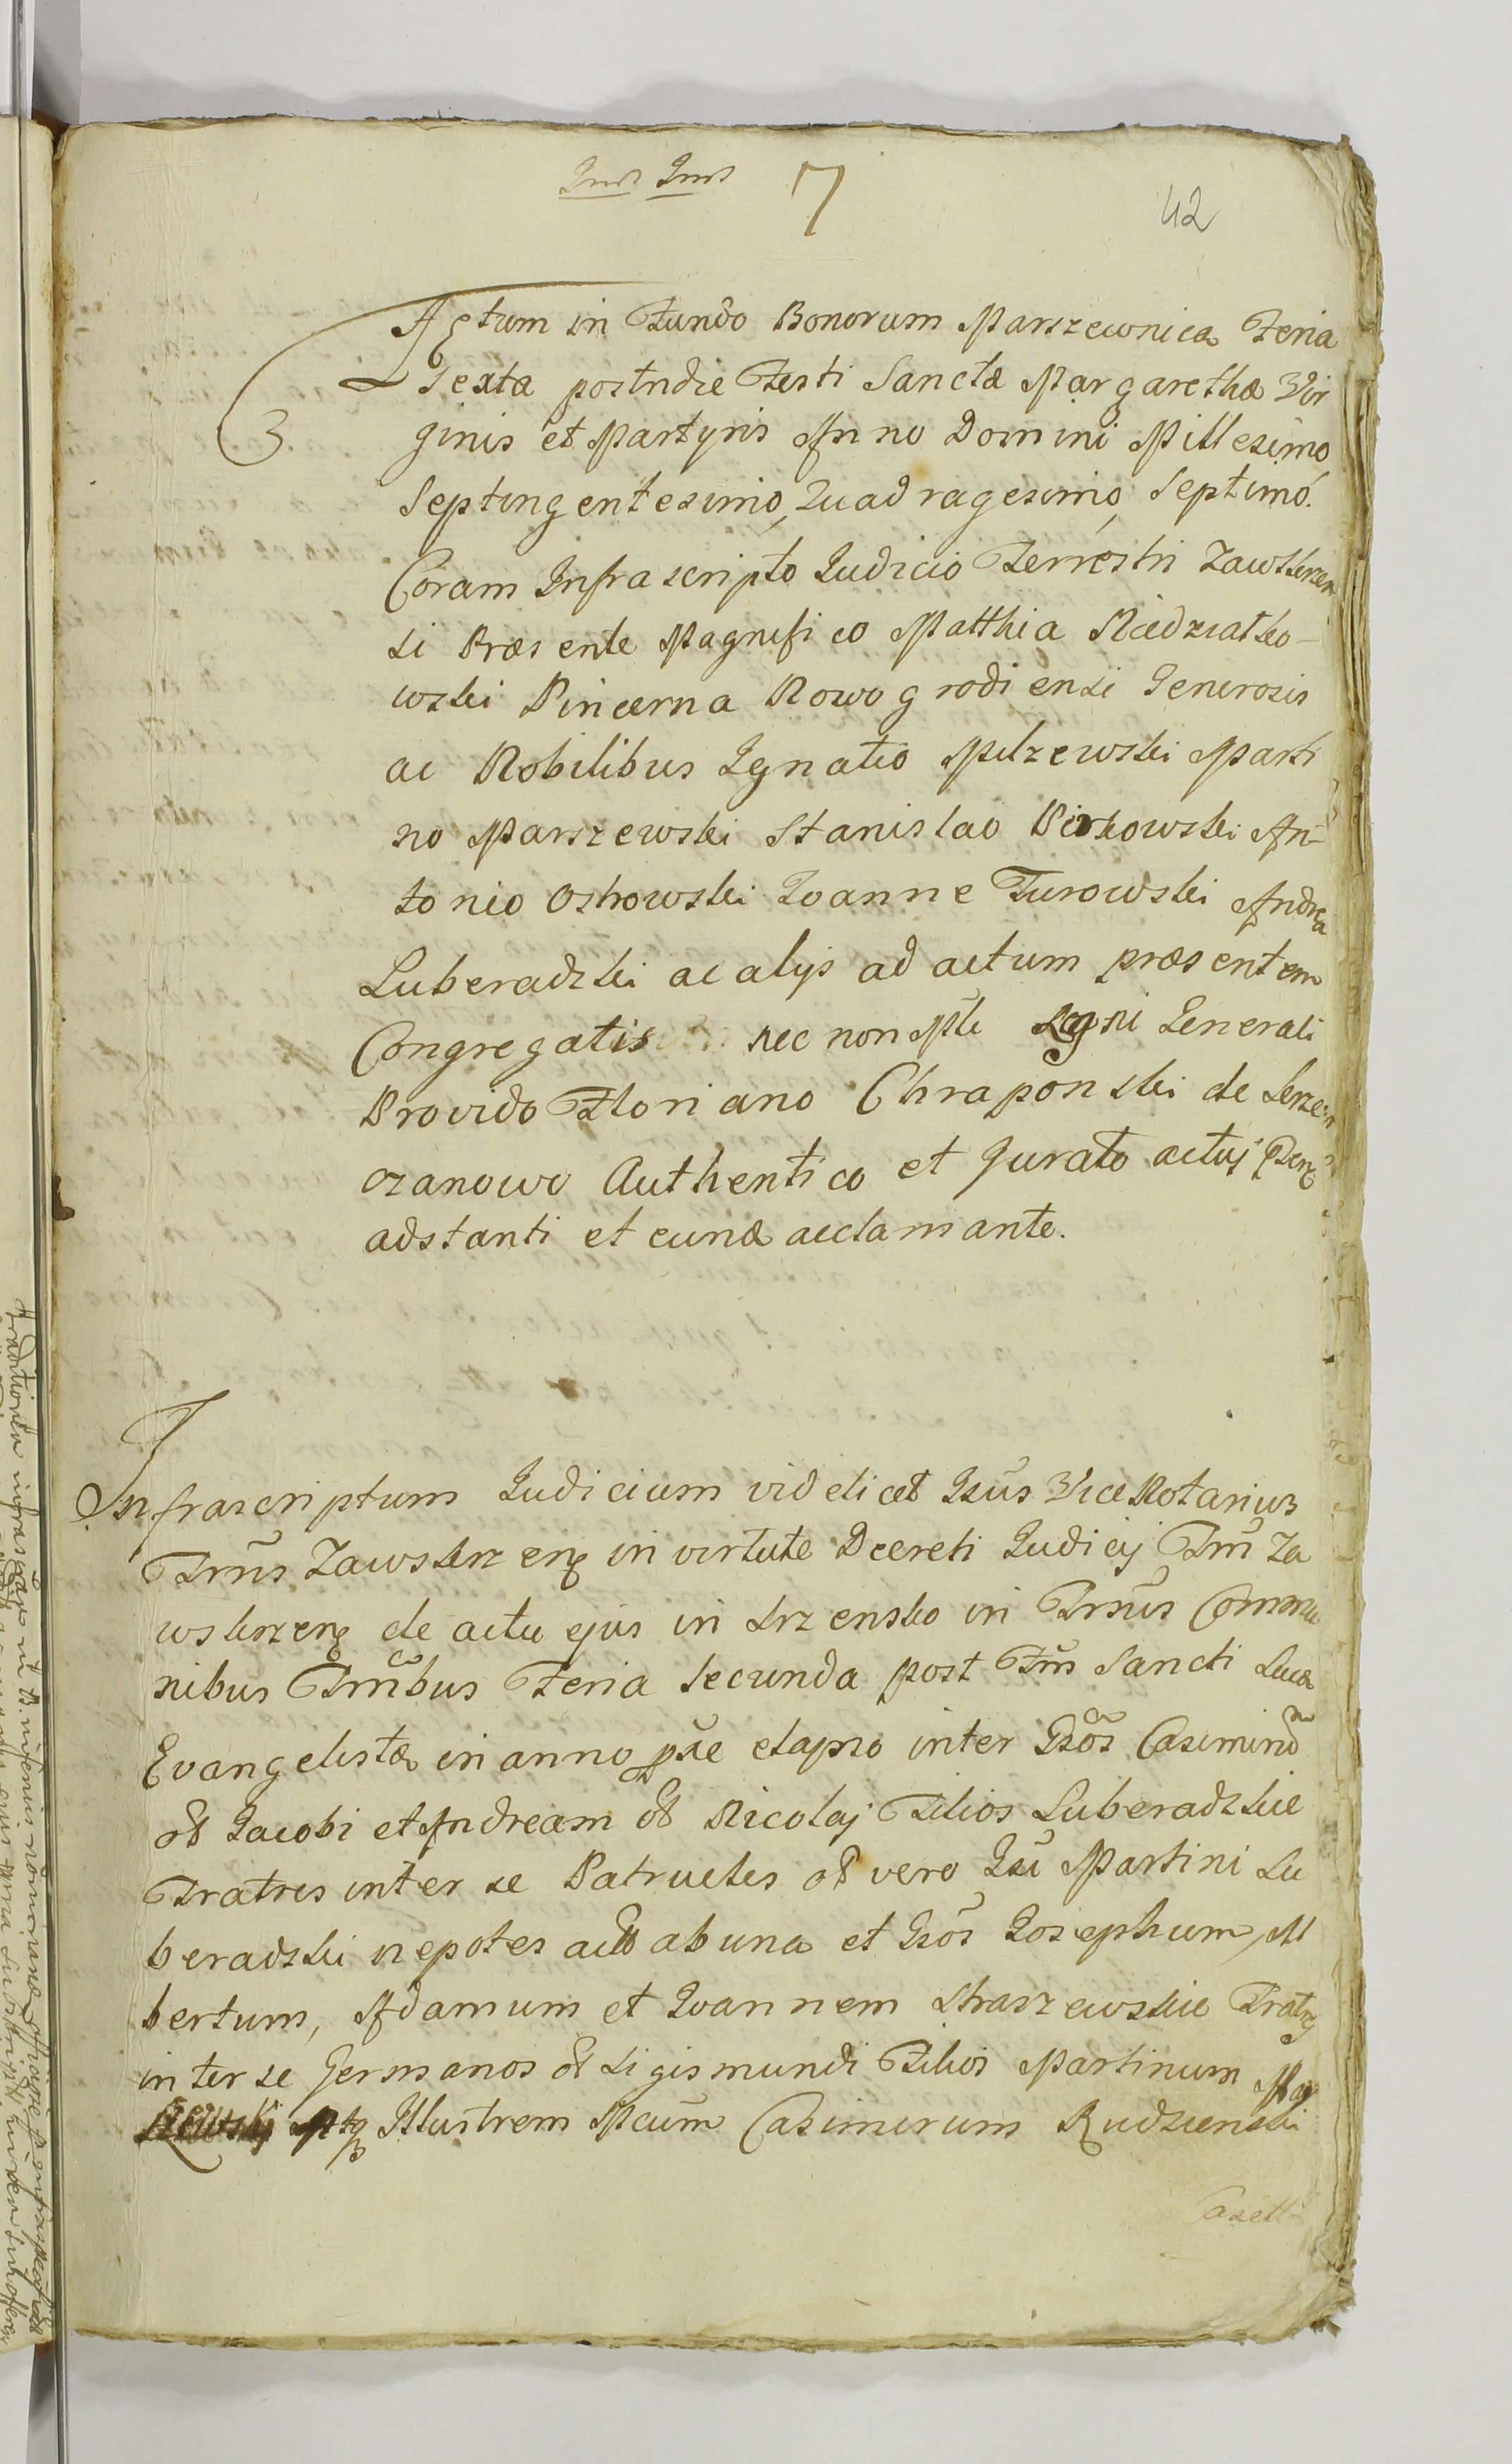 7
42
Actum in Fundo Bonorum Marszewnica Feria
Sexta postridie Festi Sanctæ Margarethæ Vir
ginis et Martyris Anno Domini Millesimo,
Septingentesimo, Quadragesimo, Septimó.
Coram Infrascripto Iudicio Terrestri Zawskrzen
si Præsente Magnifico Matthia Niedziałko-
wski Pincerna Nowogrodiensi Generosis
ac Nobilibus Ignatio Milzewski Marti
no Marszewski Stanislao Piskowski An-
tonio Ostrowski Ioanne Turowski Andrea
Luberadzki ac alijs ad actum præsentem
Congregatis nec non Mli Rgni Generali
Provido Floriano Chraponski de
czanowo Authentico et Iurato actuj
adstanti et eundæ acclamante.
Infrascriptum Iudicium videlicet Gsūs Vice Notarius
Trrūs Zawskrzenę in virtute Decreti Iudicij Trrī Za
wskrzenę de actu ejus in Srzensko in Trrūs Commu
nibus Trmībus Feria Secunda post Ftm Sancti Lucæ
Evangelistæ in anno pṙe elapso inter Gsōs Casimirū
olī Iacobi et Andream olī Nicolaj Filios Luberadzkie
Fratres inter se Patrueles olī vero Gsi Martini Lu
beradzki nepotes ab una et Gsōs Iosephum, Al
bertum, Adamum et Ioannem Straszewskie Fratrę
inter se Germanos olī Sigismundi Filios Martinum Mar
Atq Illustrem Mcūm Casimirum Rudzienski